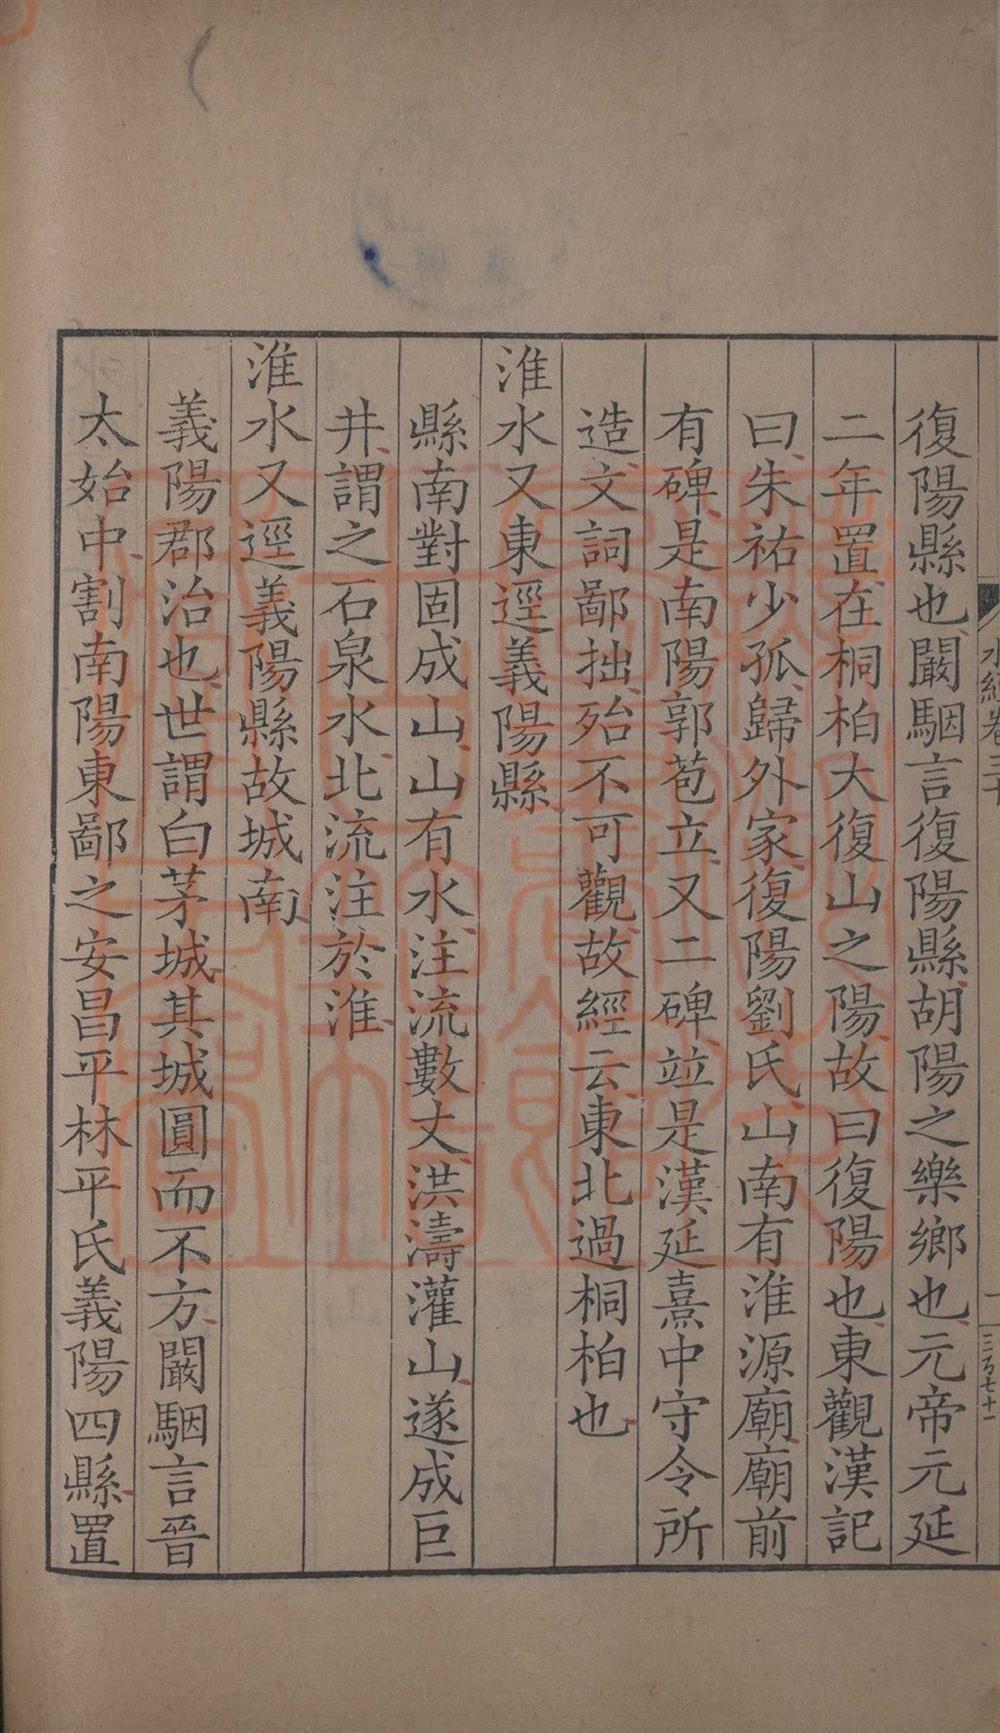 水經卷三十
一
三百七十一
復陽縣也闞駰言復陽縣胡陽之樂鄉也元帝元延
二年置在桐柏大復山之陽故曰復陽也東觀漢記
曰朱祐少孤歸外家復陽劉氏山南有淮源廟廟前
有碑是南陽郭苞立又二碑竝是漢延熹中守令所
造文詞鄙拙殆不可觀故經云東北過桐柏也
淮水又東逕義陽縣
縣南對固成山山有水注流數丈洪濤灌山遂成巨
井謂之石泉水北流注於淮
淮水又逕義陽縣故城南
義陽郡治也世謂白茅城其城圓而不方闞駰言晉
太始中割南陽東鄙之安昌平林平氏義陽四縣置